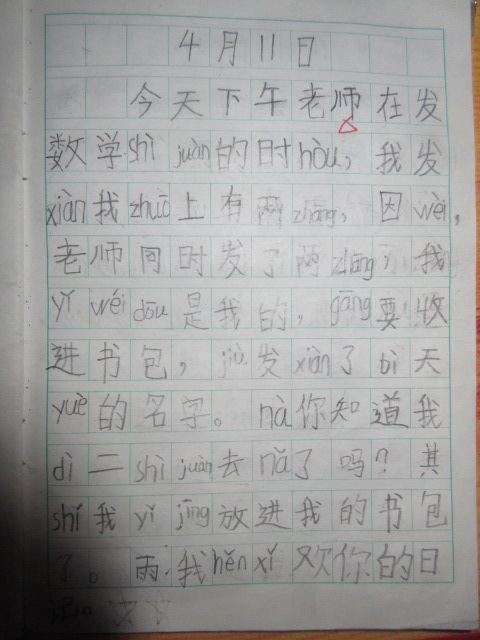 4月11日
今天下午老师在发
数学shì juàn的时hòu，我发
xiàn我zhuō上有两zhāng，因wèi，
老师同时发了两zhāng，我
yǐ wéi dōu是我的，gāng要收
进书包，jiù发xiàn了bì天
yuè的名字。nà你知道我
dì二shì juàn去nǎ了吗？其
shí我yǐ jīng放进我的书包
了。雨：我hěn xǐ欢你的日
记。